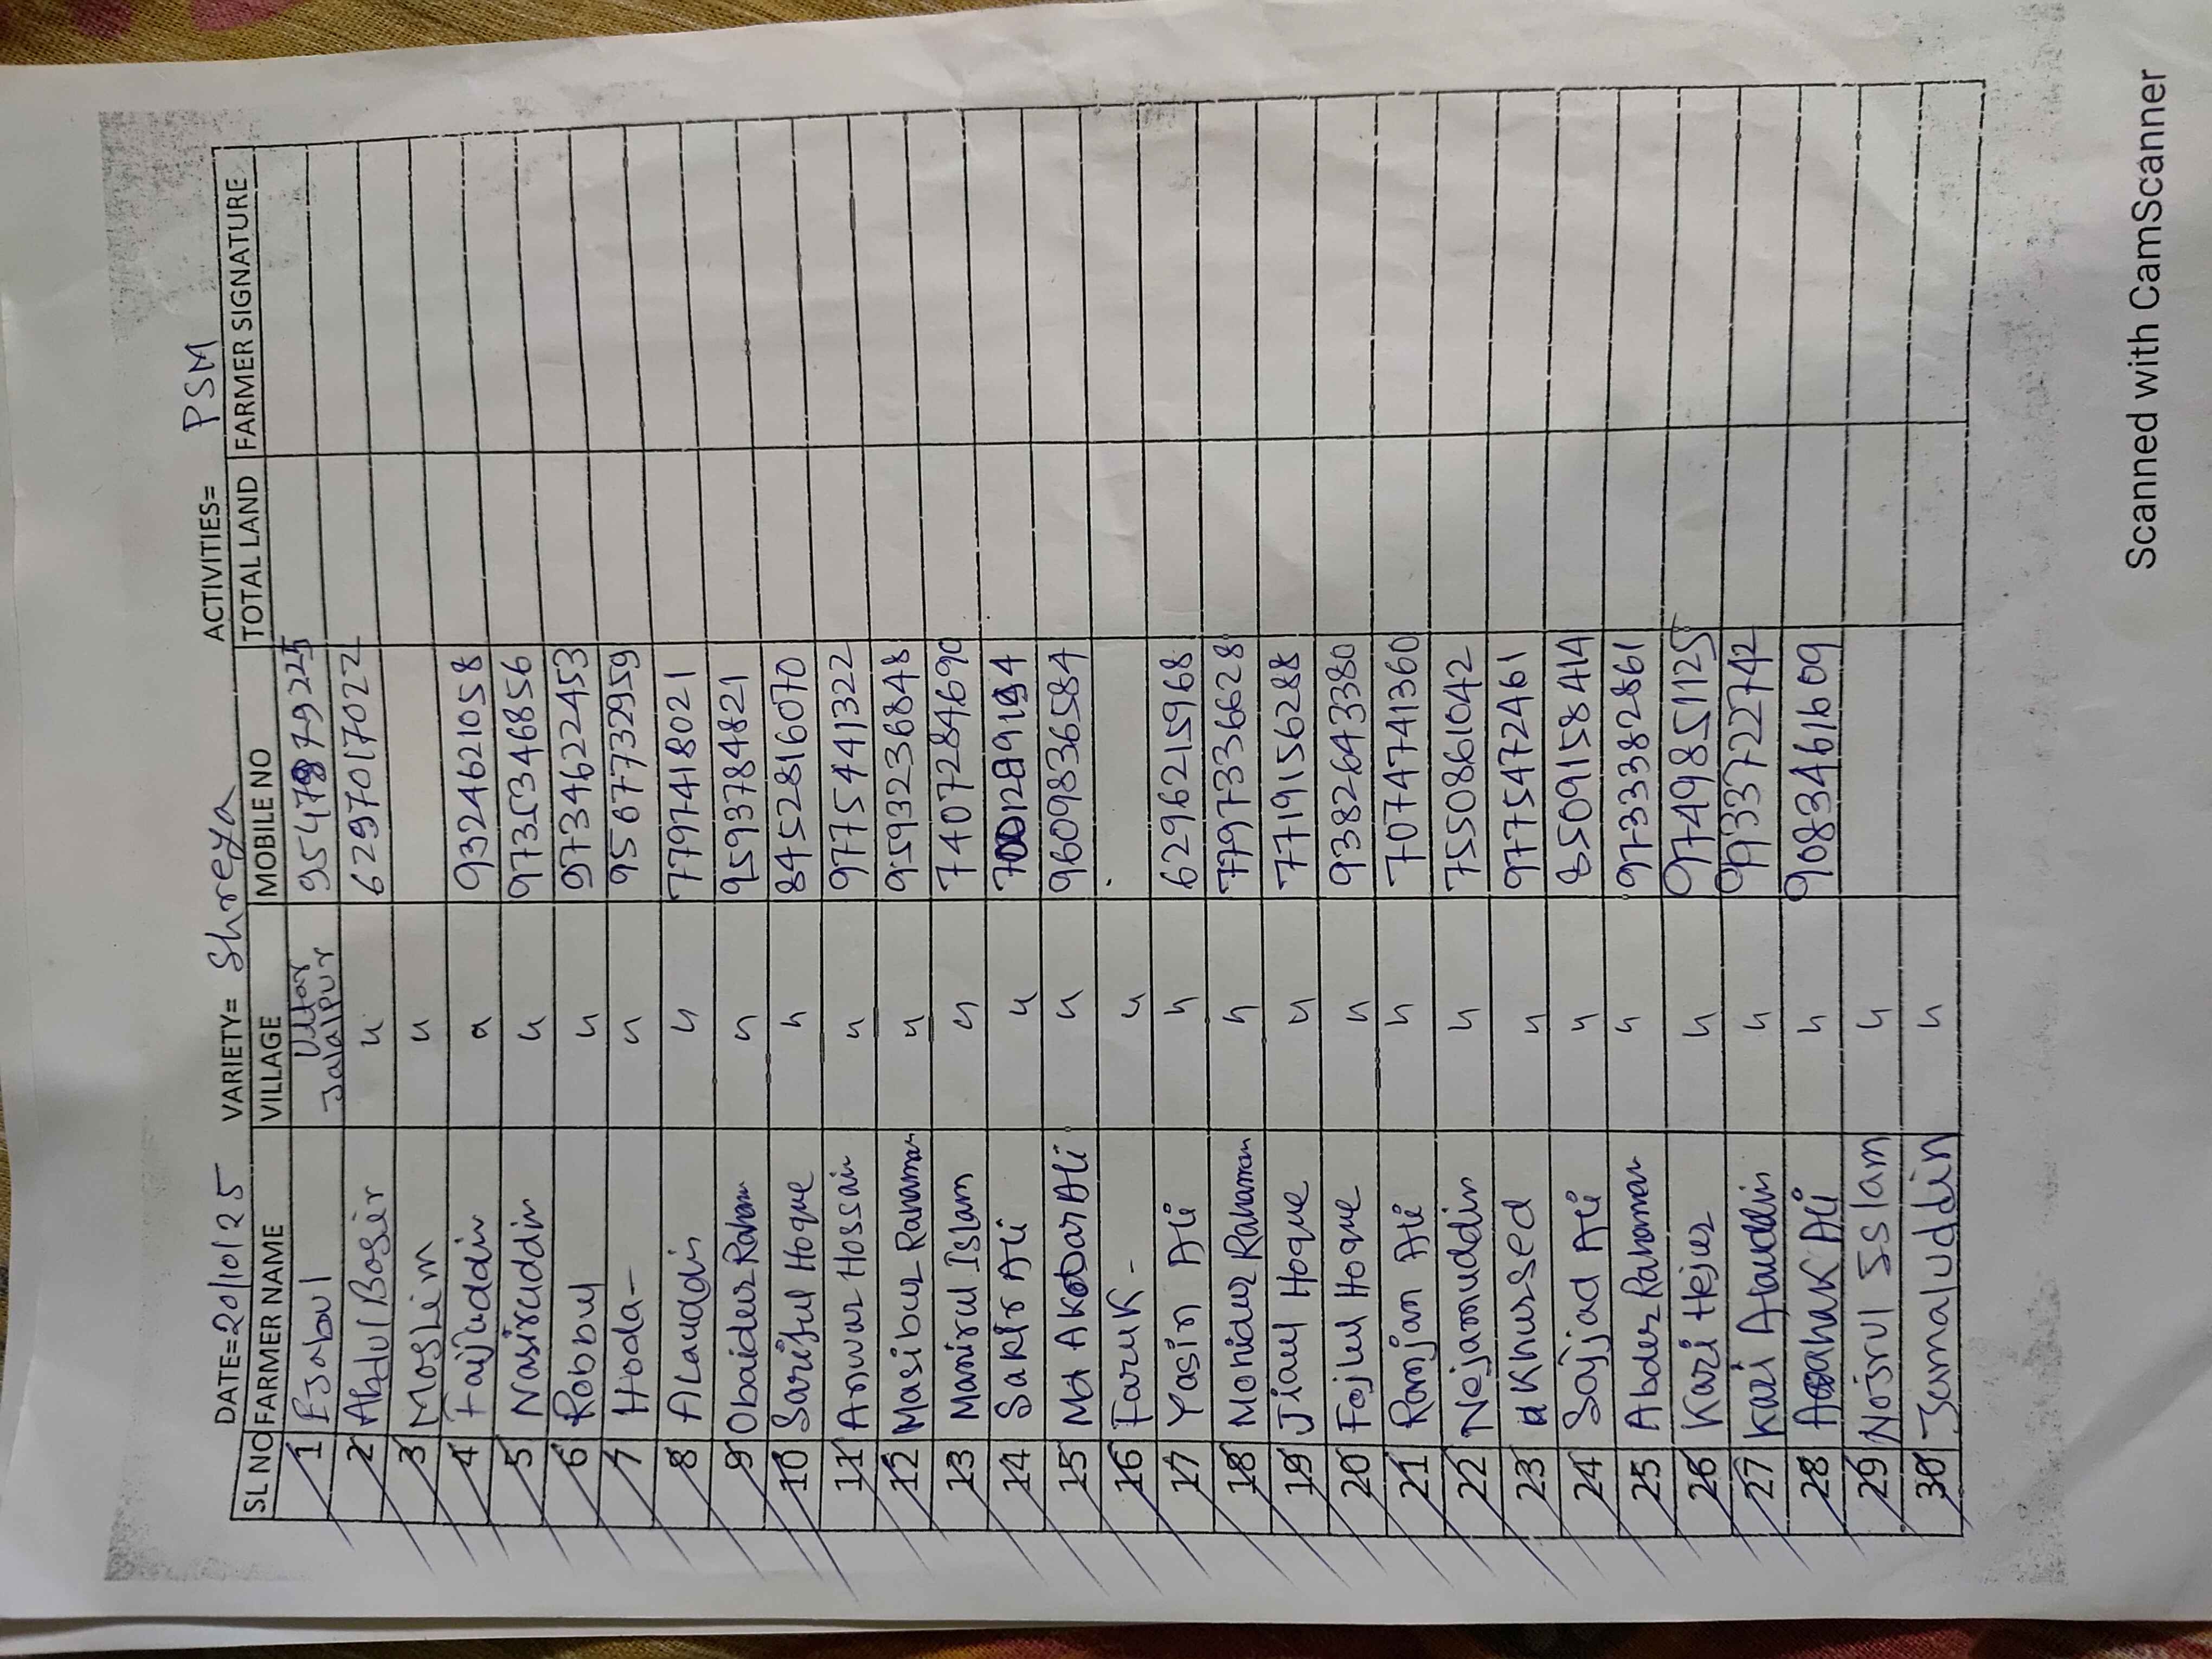 DATE=20/10/25 VARIETY= Shreya ACTIVITIES= PSM
SL NO FARMER NAME VILLAGE MOBILE NO TOTAL LAND FARMER SIGNATURE
1 Ejabul Uttar Jalalpur
2 Abdul Bosir " 6297017022
3 Moslem "
4 Faijuddin " 9324621058
5 Nasiruddin " 9735346856
6 Robbul " 9734622453
7 Hoda- " 9567732959
8 Alauddin " 7797418021
9 Obaidur Raham " 9593784821
10 Sariful Hoque " 8452816070
11 Anwar Hossain " 9775441322
12 Masibur Rahaman " 9593236848
13 Manirul Islam " 7407284690
14 Sakir Ali "
15 Md Akbar Ali " 9609836584
16 Faruk - "
17 Yasin Ali " 6296215968
18 Mohidur Rahaman " 7797336628
19 Jiaul Hoque " 7719156288
20 Fajlul Hoque " 9382643380
21 Ramjan Ali " 7074741360
22 Nejamuddin " 7550861042
23 Khursed " 9775472461
24 Sajjad Ali " 8509158414
25 Abdur Rahaman " 9733382861
26 Kazi Hejur " 9749851125
27 Kazi Alauddin " 9933722742
28 Ali " 9083461609
29 Nojrul Islam "
30 Jamaluddin "
Scanned with CamScanner